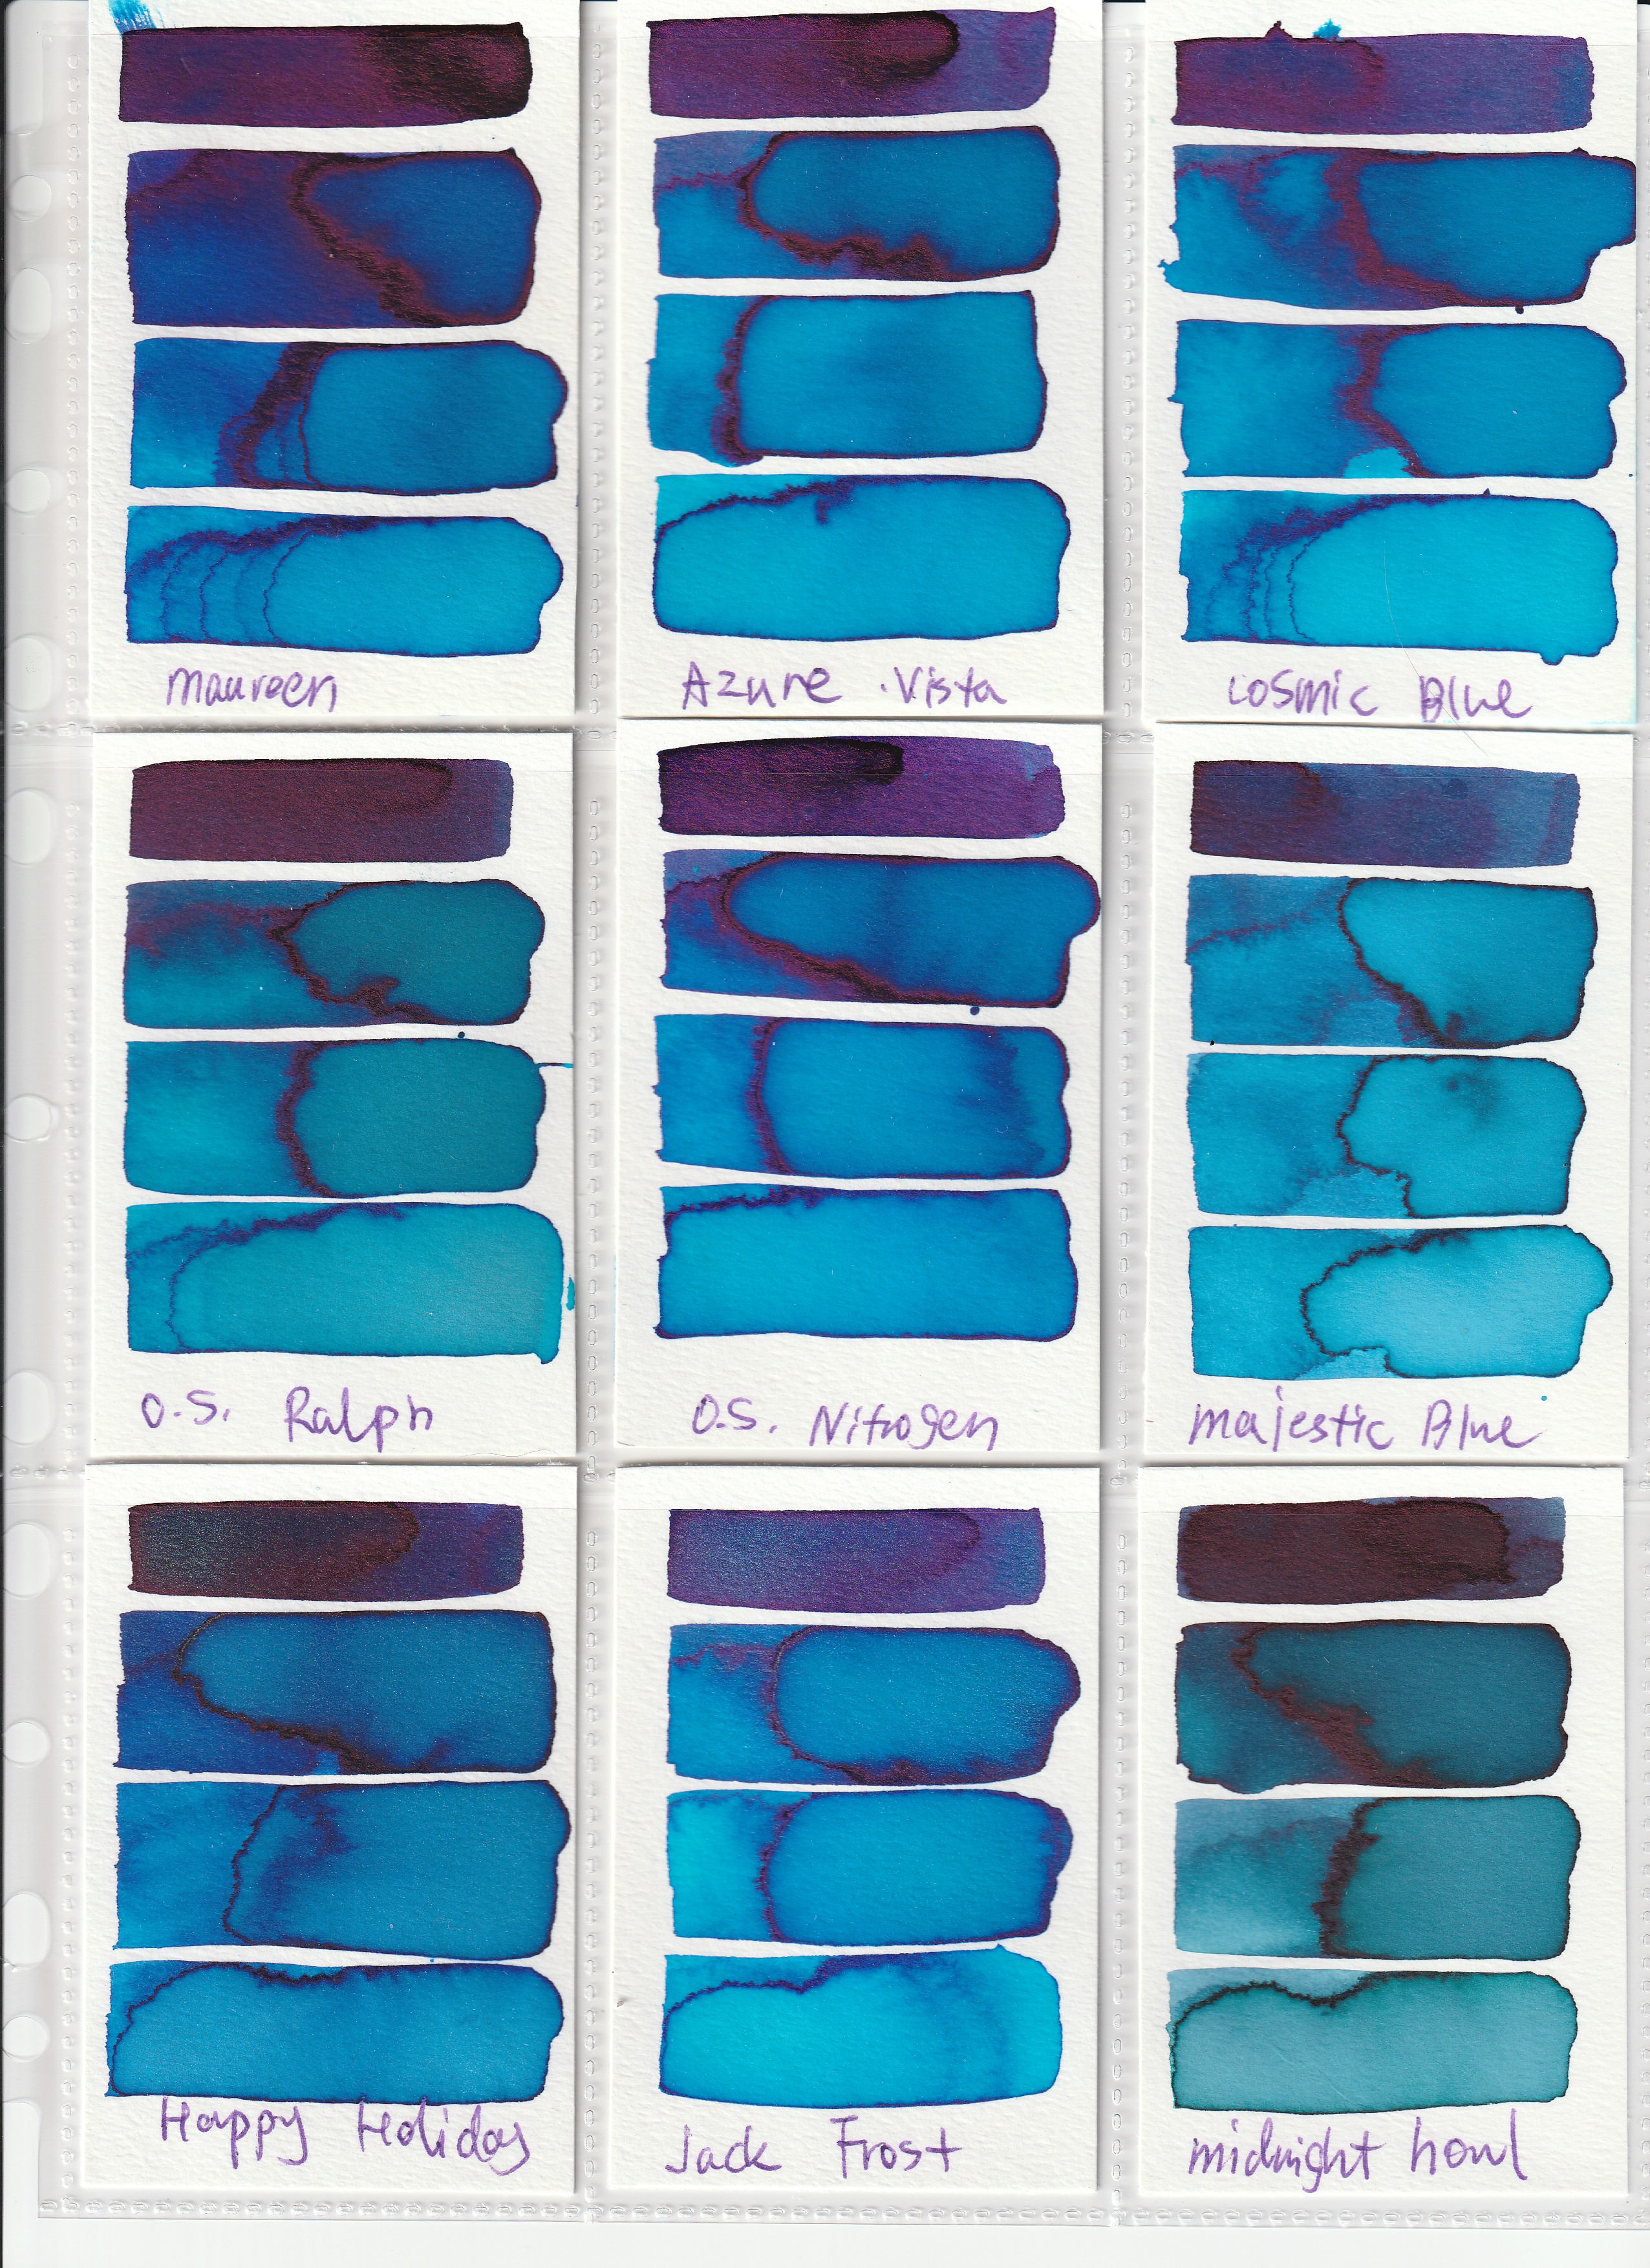 Maureen
Azure Vista
Cosmic Blue
O.S. Ralph
O.S. Nitrogen
Majestic Blue
Happy Holiday
Jack Frost
midnight howl